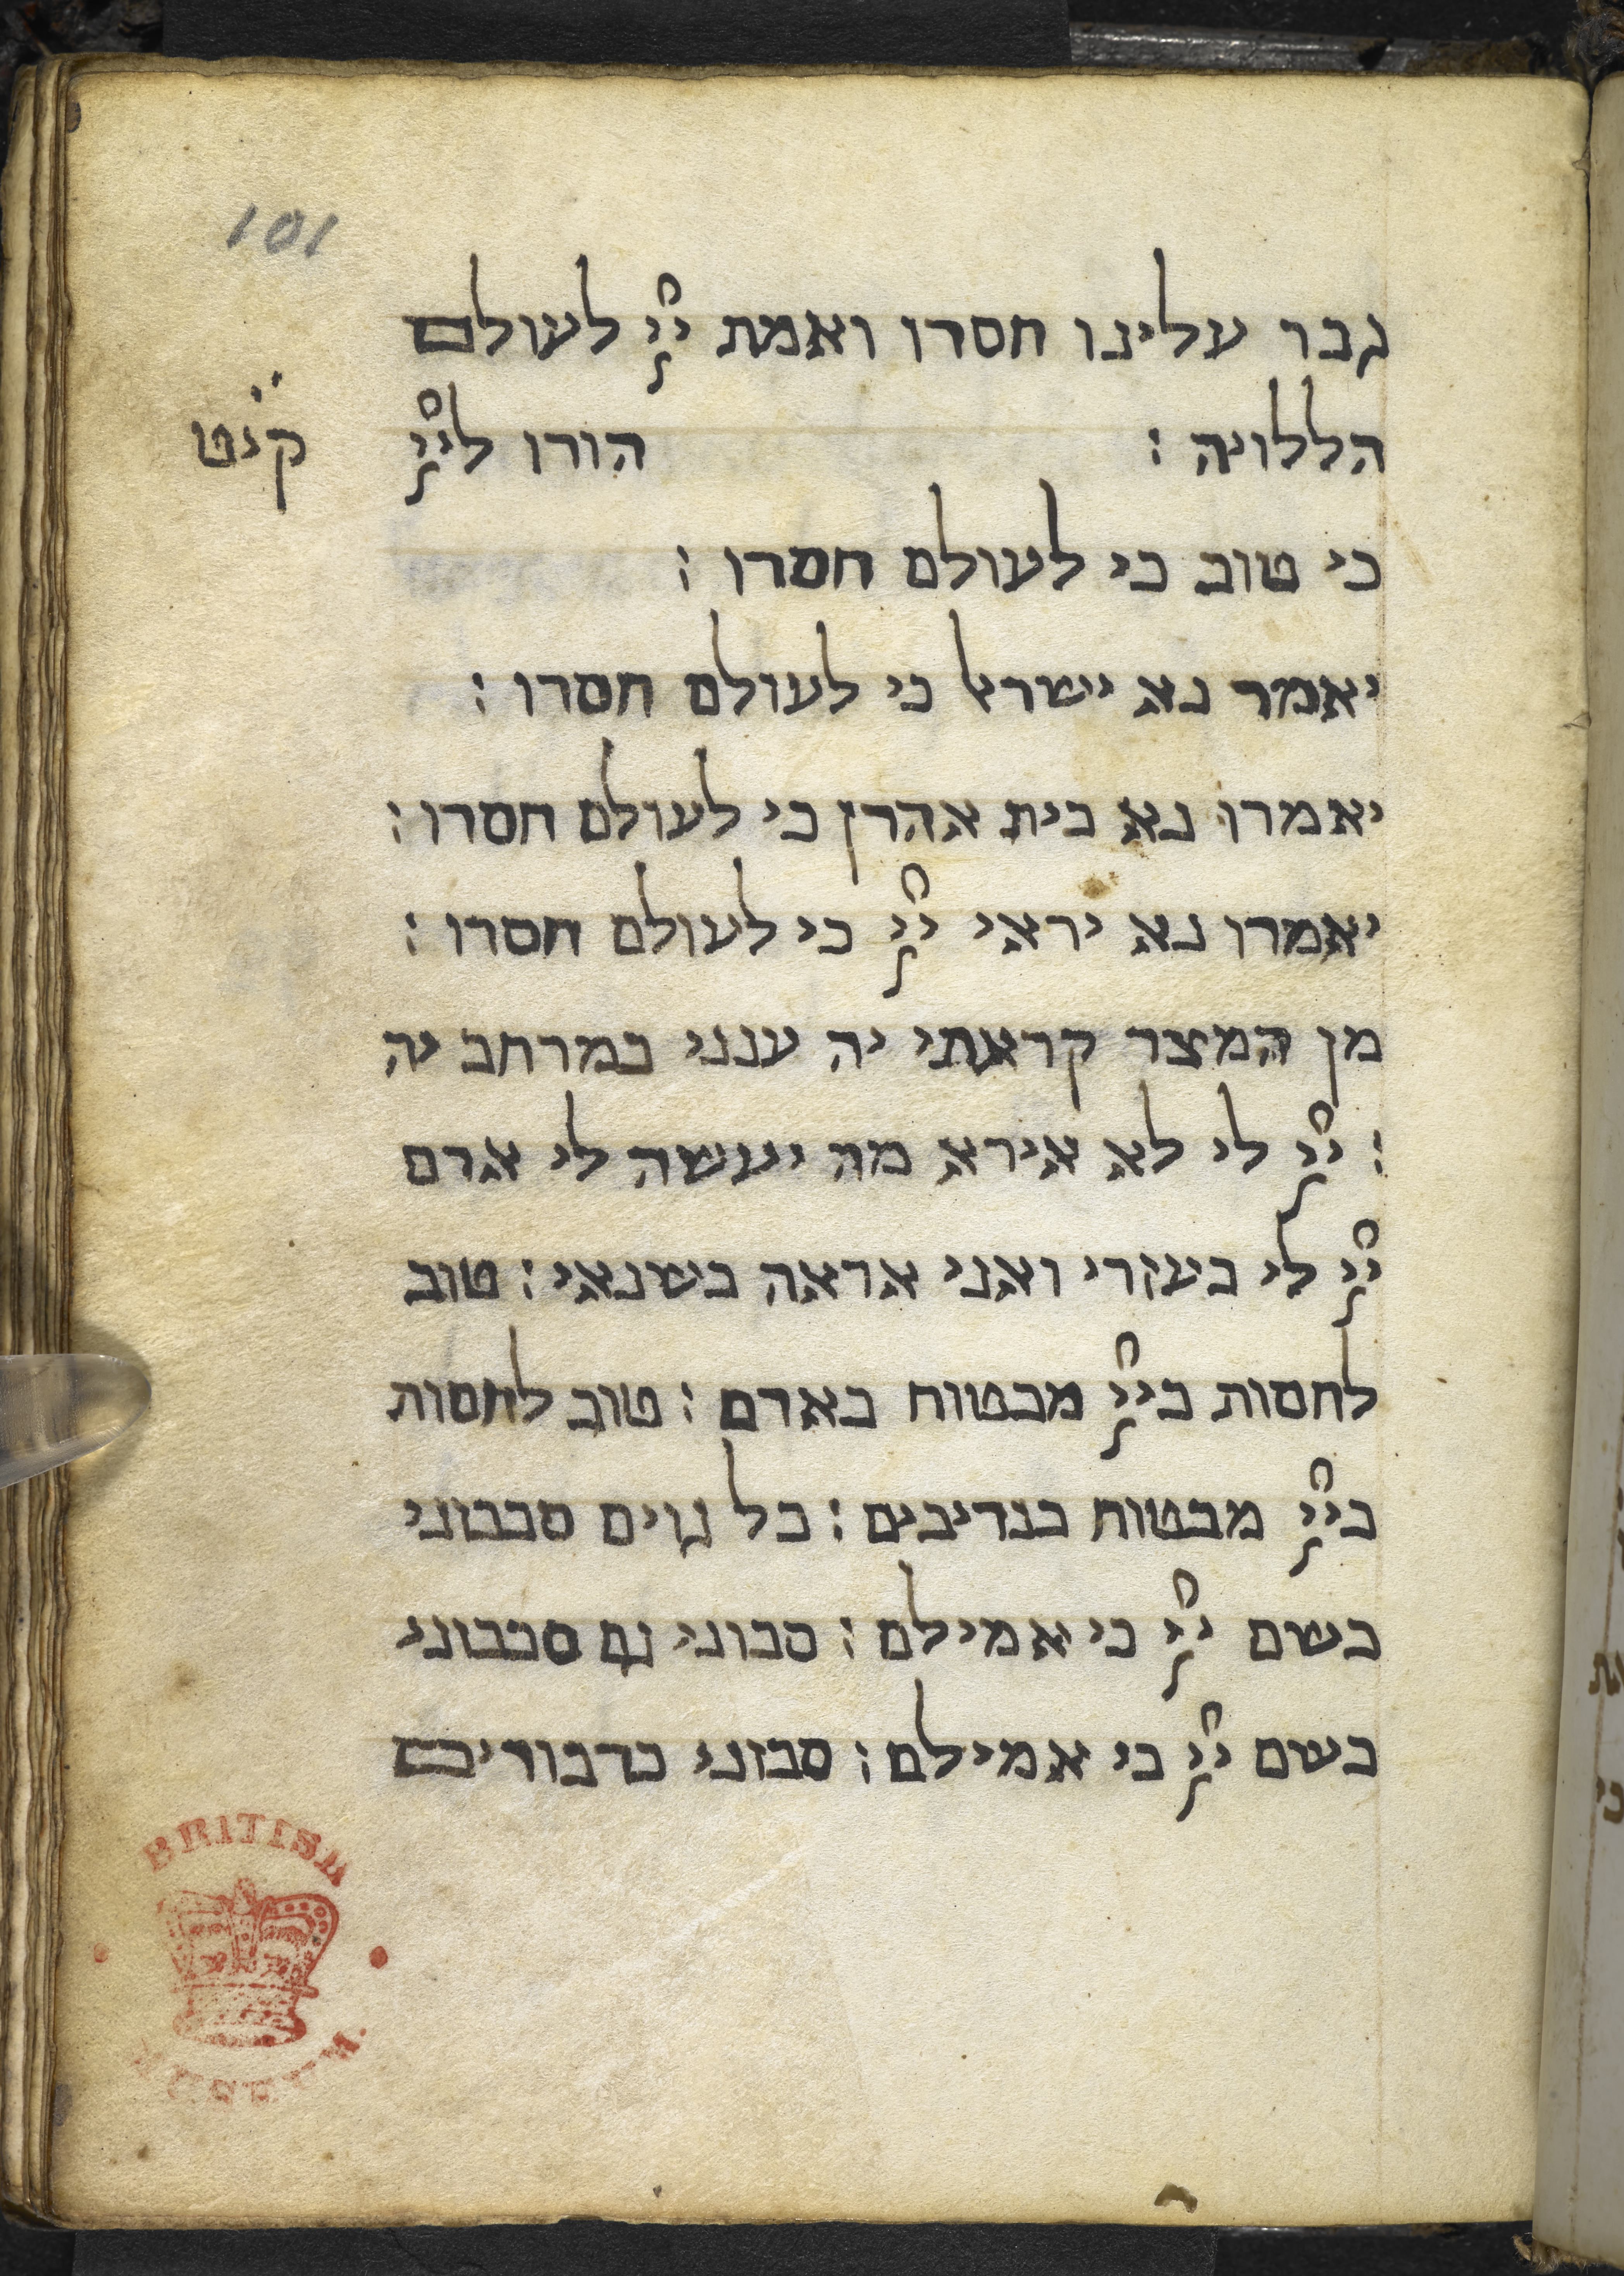 101
גבר עלינו חסדו ואמת ייי לעולם
הללויה : הודו לייי
קיט
כי טוב כי לעולם חסדו :
יאמר נא ישראל כי לעולם חסדו :
יאמרו נא בית אהרן כי לעולם חסדו :
יאמרו נא יראי ייי כי לעולם חסדו :
מן המצר קראתי יה ענני במרחב יה
: ייי לי לא אירא מה יעשה לי אדם
ייי לי בעזרי ואני אראה בשנאי : טוב
לחסות בייי מבטוח באדם : טוב לחסות
בייי מבטוח בנדיבים : כל גוים סבבוני
בשם ייי כי אמילם : סבוני גם סבבוני
בשם ייי כי אמילם : סבוני כדבורים
BRITISH
MUSEUM